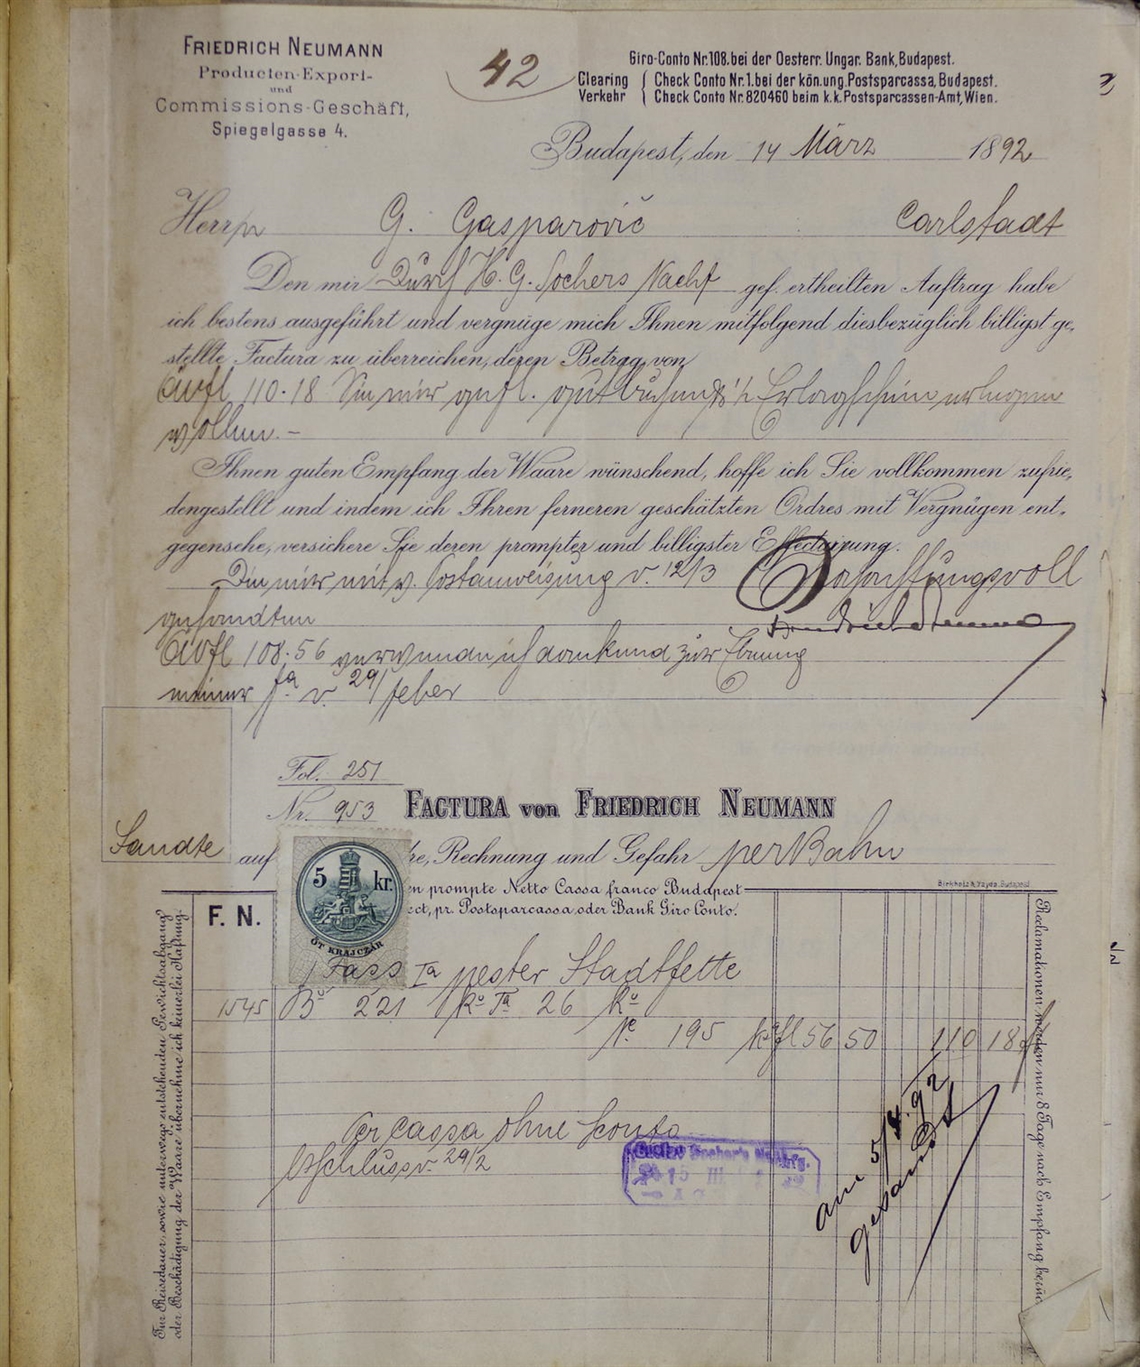 FRIEDRICH NEUMANN
Producten-Export-
und
Commissions-Geschäft,
Spiegelgasse 4.
42
Giro-Conto Nr. 108. bei der Oesterr. Ungar. Bank, Budapest.
Clearing Verkehr { Check Conto Nr. 1. bei der kön. ung. Postsparcassa, Budapest.
Check Conto Nr. 820460 beim k. k. Postsparcassen-Amt, Wien.
Budapest, den 14 März 1892
Herrn G. Gasparovič Carlstadt
Den mir Durch H. G. Sochers Nachf gef. ertheilten Auftrag habe
ich bestens ausgeführt und vergnüge mich Ihnen mitfolgend diesbezüglich billigst ge-
stellte Factura zu überreichen, deren Betrag von
öwfl 110.18 Sie mir gefl. gutbringen Erlagschein erlegen
wollen. –
Ihnen guten Empfang der Waare wünschend, hoffe ich Sie vollkommen zufrie-
dengestellt und indem ich Ihren ferneren geschätzten Ordres mit Vergnügen ent-
gegensehe, versichere Sie deren prompter und billigster Effectuirung.
Die mir mit Postanweisung v. 12/3
Hochachtungsvoll
gesandten
Friedrich Neumann
öwfl 108.56 verwende ich dankend zur Ebnung
meiner fa v. 29/feber
Fol. 251
Nr. 953
FACTURA von FRIEDRICH NEUMANN
Sandte auf re, Rechnung und Gefahr per Bahn
en prompte Netto Cassa franco Budapest
ect, pr. Postsparcassa oder Bank Giro Conto.
Birnholz & Hayos, Budapest
F. N.
5 kr.
ÖT KRAJCZÁR
1 Fass Ia pester Stadtfette
1545 Bo 221 Ko Ta 26 Ko
N. 195 Ko fl 56 50 110 18
Per Cassa ohne Sconto
Schluss v. 29/2
15 III
am 5/4. 92
gesandt
Für Reisedauer, sowie unterwegs entstehenden Gewichtsabgang
oder Beschädigung der Waare übernehme ich keinerlei Haftung.
Reclamationen werden nur 8 Tage nach Empfang